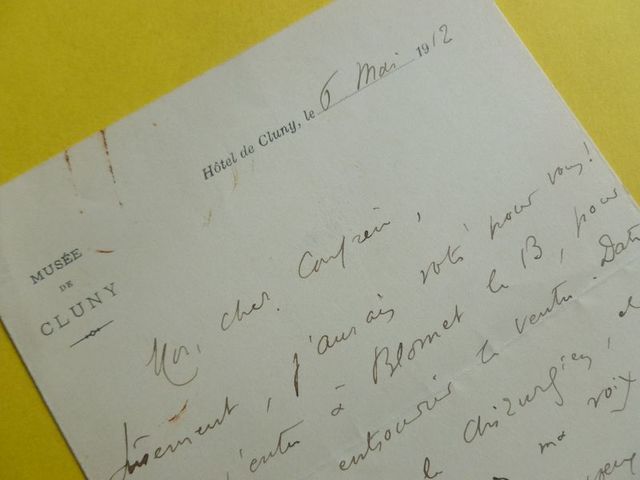 MUSÉE
DE
CLUNY
Hôtel de Cluny, le 6 Mai 1912
Mon cher Confrère,
j'aurais voté pour vous!
j'entre à Blomet le 13, pour
entrouvrir le ventre. Date
le chirurgien, et
ma voix